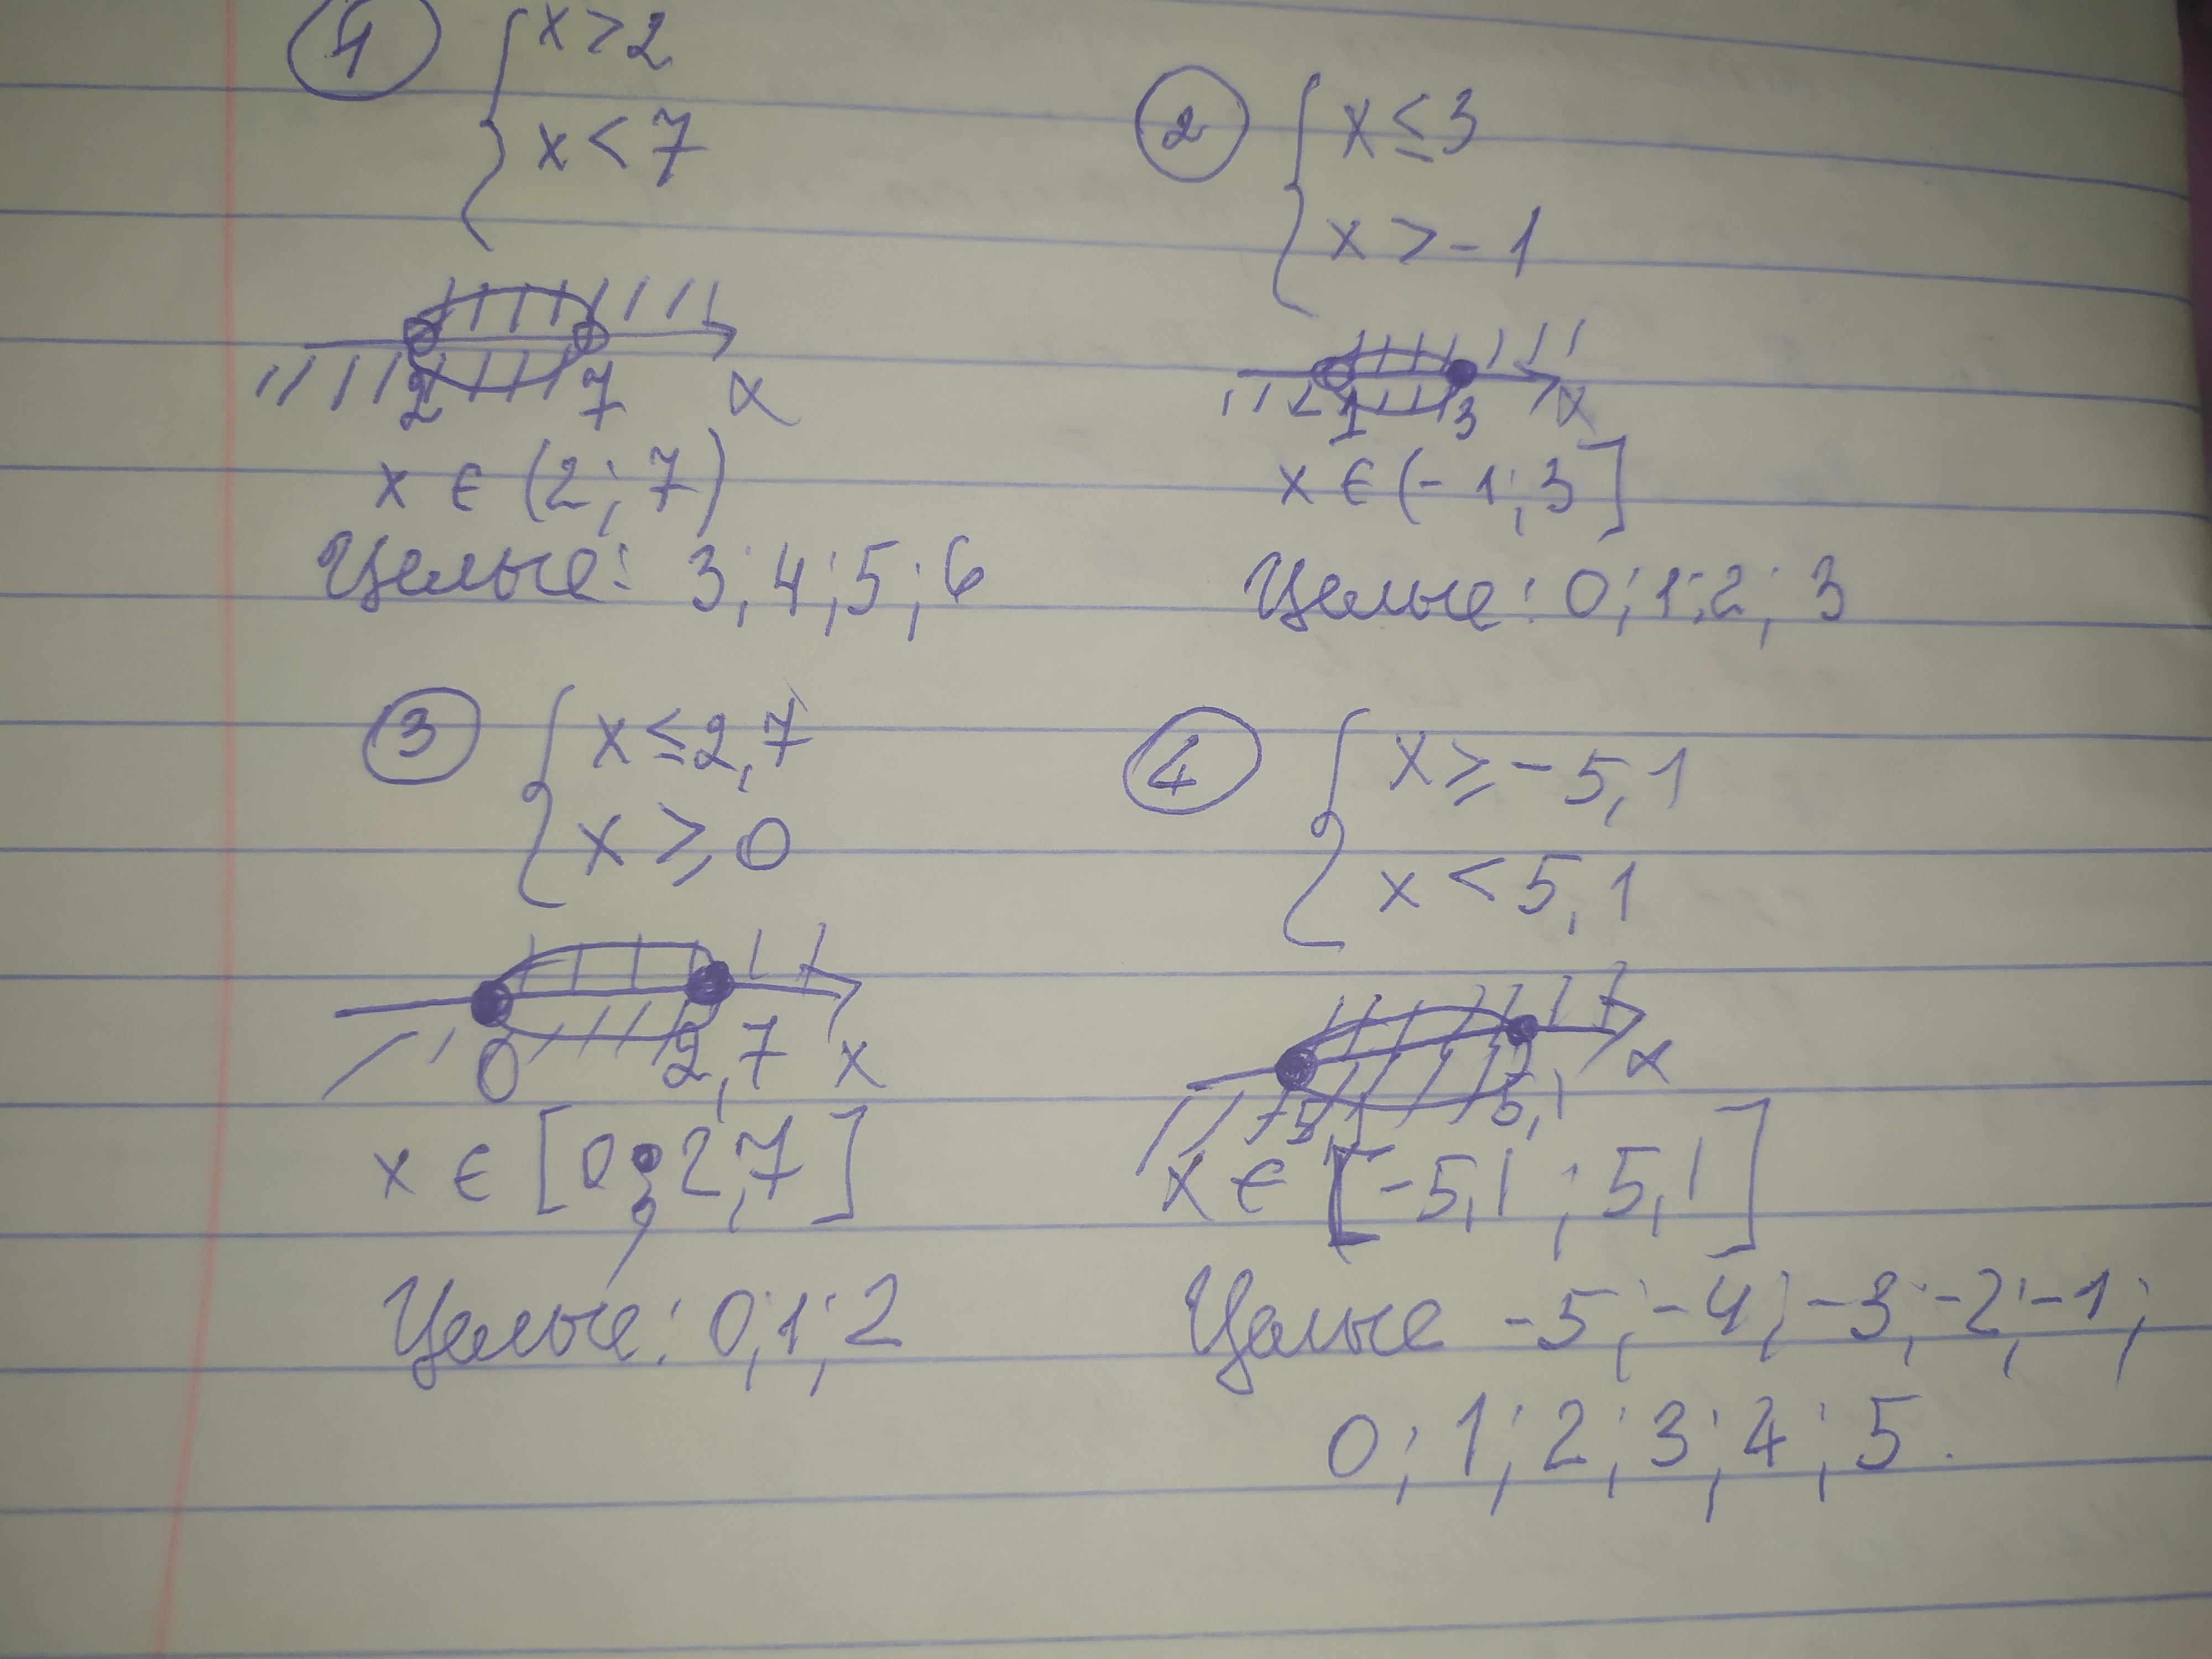 1
x > 2
x < 7
2 7 x
x ∈ (2; 7)
Целые: 3; 4; 5; 6
2
x ≤ 3
x > -1
-1 3 x
x ∈ (-1; 3]
Целые: 0; 1; 2; 3
3
x ≤ 2,7
x ≥ 0
0 2,7 x
x ∈ [0; 2,7]
Целые: 0; 1; 2
4
x ≥ -5,1
x < 5,1
-5,1 5,1 x
x ∈ [-5,1; 5,1]
Целые -5; -4; -3; -2; -1;
0; 1; 2; 3; 4; 5.